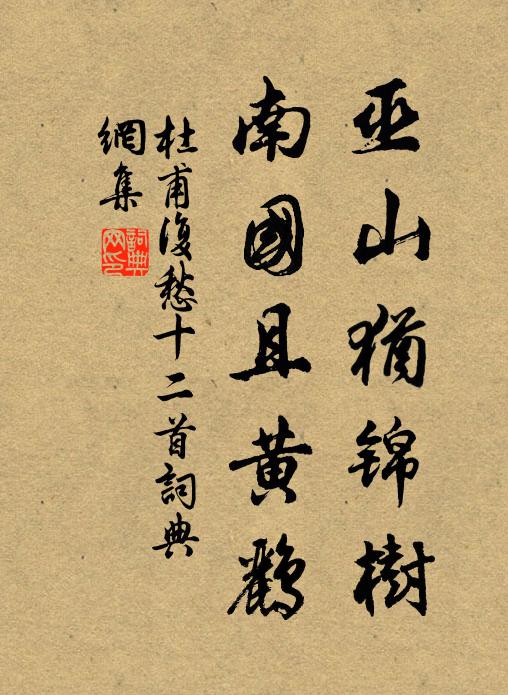 巫山猶錦樹
南國且黃鸝
杜甫復愁十二首詞典
網集
詞典
网印